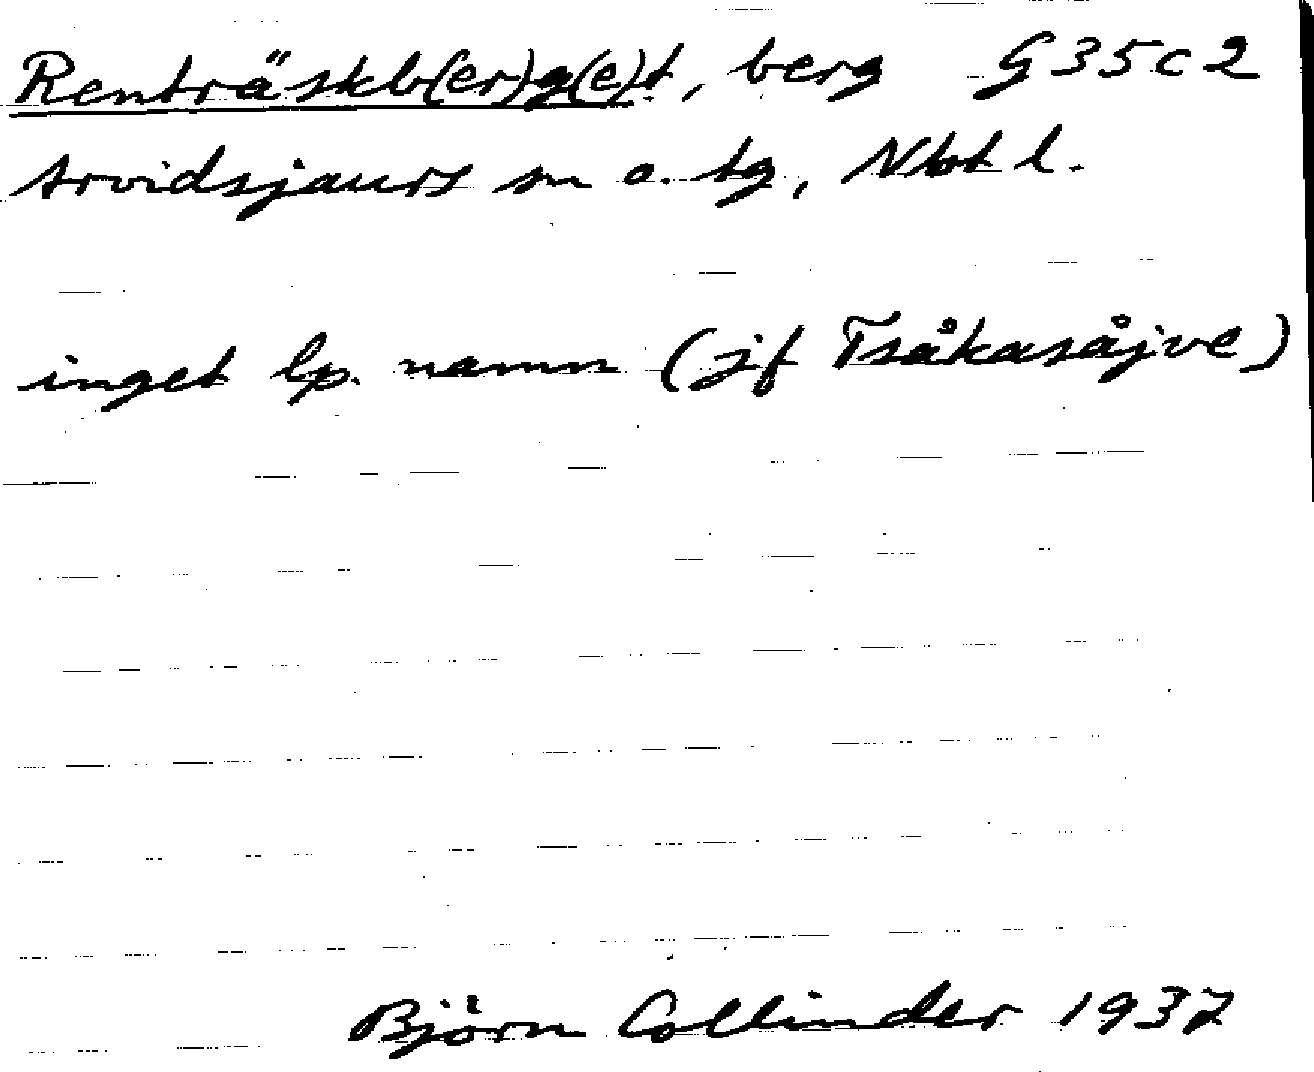 Renträskb(er)g(e)t, berg G35c2
Arvidsjaurs sn o. tg, Nbt l.
inget lp. namn (jf Tsåkasåjve)
Björn Collinder 1937